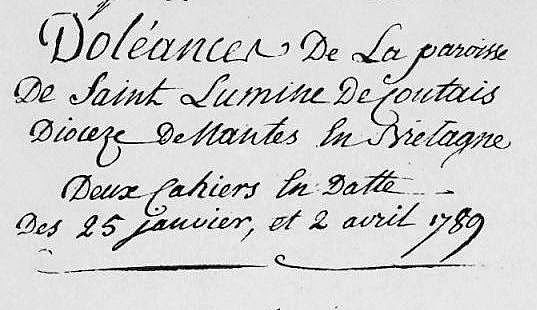 Doléances De La paroisse
De Saint Lumine De Coutais
Dioceze De Nantes En Bretagne
Deux Cahiers En Datte
Des 25 janvier, et 2 avril 1789